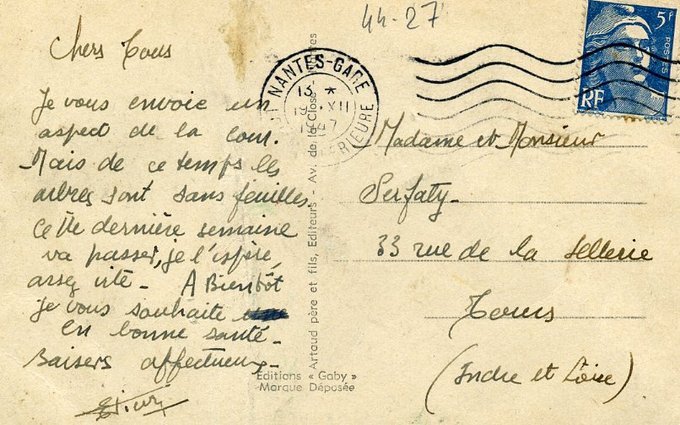 44-27
Chers Tous
Je vous envoie un
aspect de la cour.
Mais de ce temps les
arbres sont sans feuilles.
Cette dernière semaine
va passer, je l'espère,
assez vite - A Bientôt
je vous souhaite
en bonne santé -
Baisers affectueux -
Artaud père et fils, Editeurs - Av. de la Close
Editions « Gaby »
Marque Déposée
NANTES-GARE
13 *
19 XII
1947
INFERIEURE
5F
POSTES
RF
Madame et Monsieur
Serfaty -
33 rue de la Sellerie
Tours
(Indre et Loire)